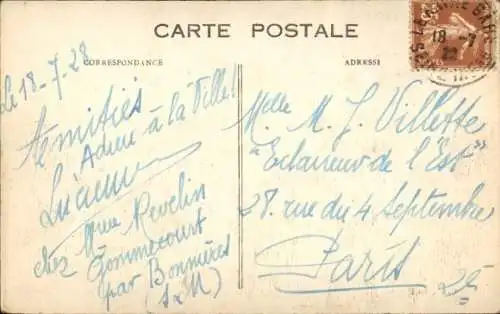 CARTE POSTALE
CORRESPONDANCE
ADRESSE
18 -7
Le 18-7-28
Amitiés
Adieu à la Ville!
chez Mme Revelin
Gommecourt
par Bonnières
(S & M)
Melle M. J. Villette
"Eclaireur de l'Est"
28. rue du 4 Septembre
Paris